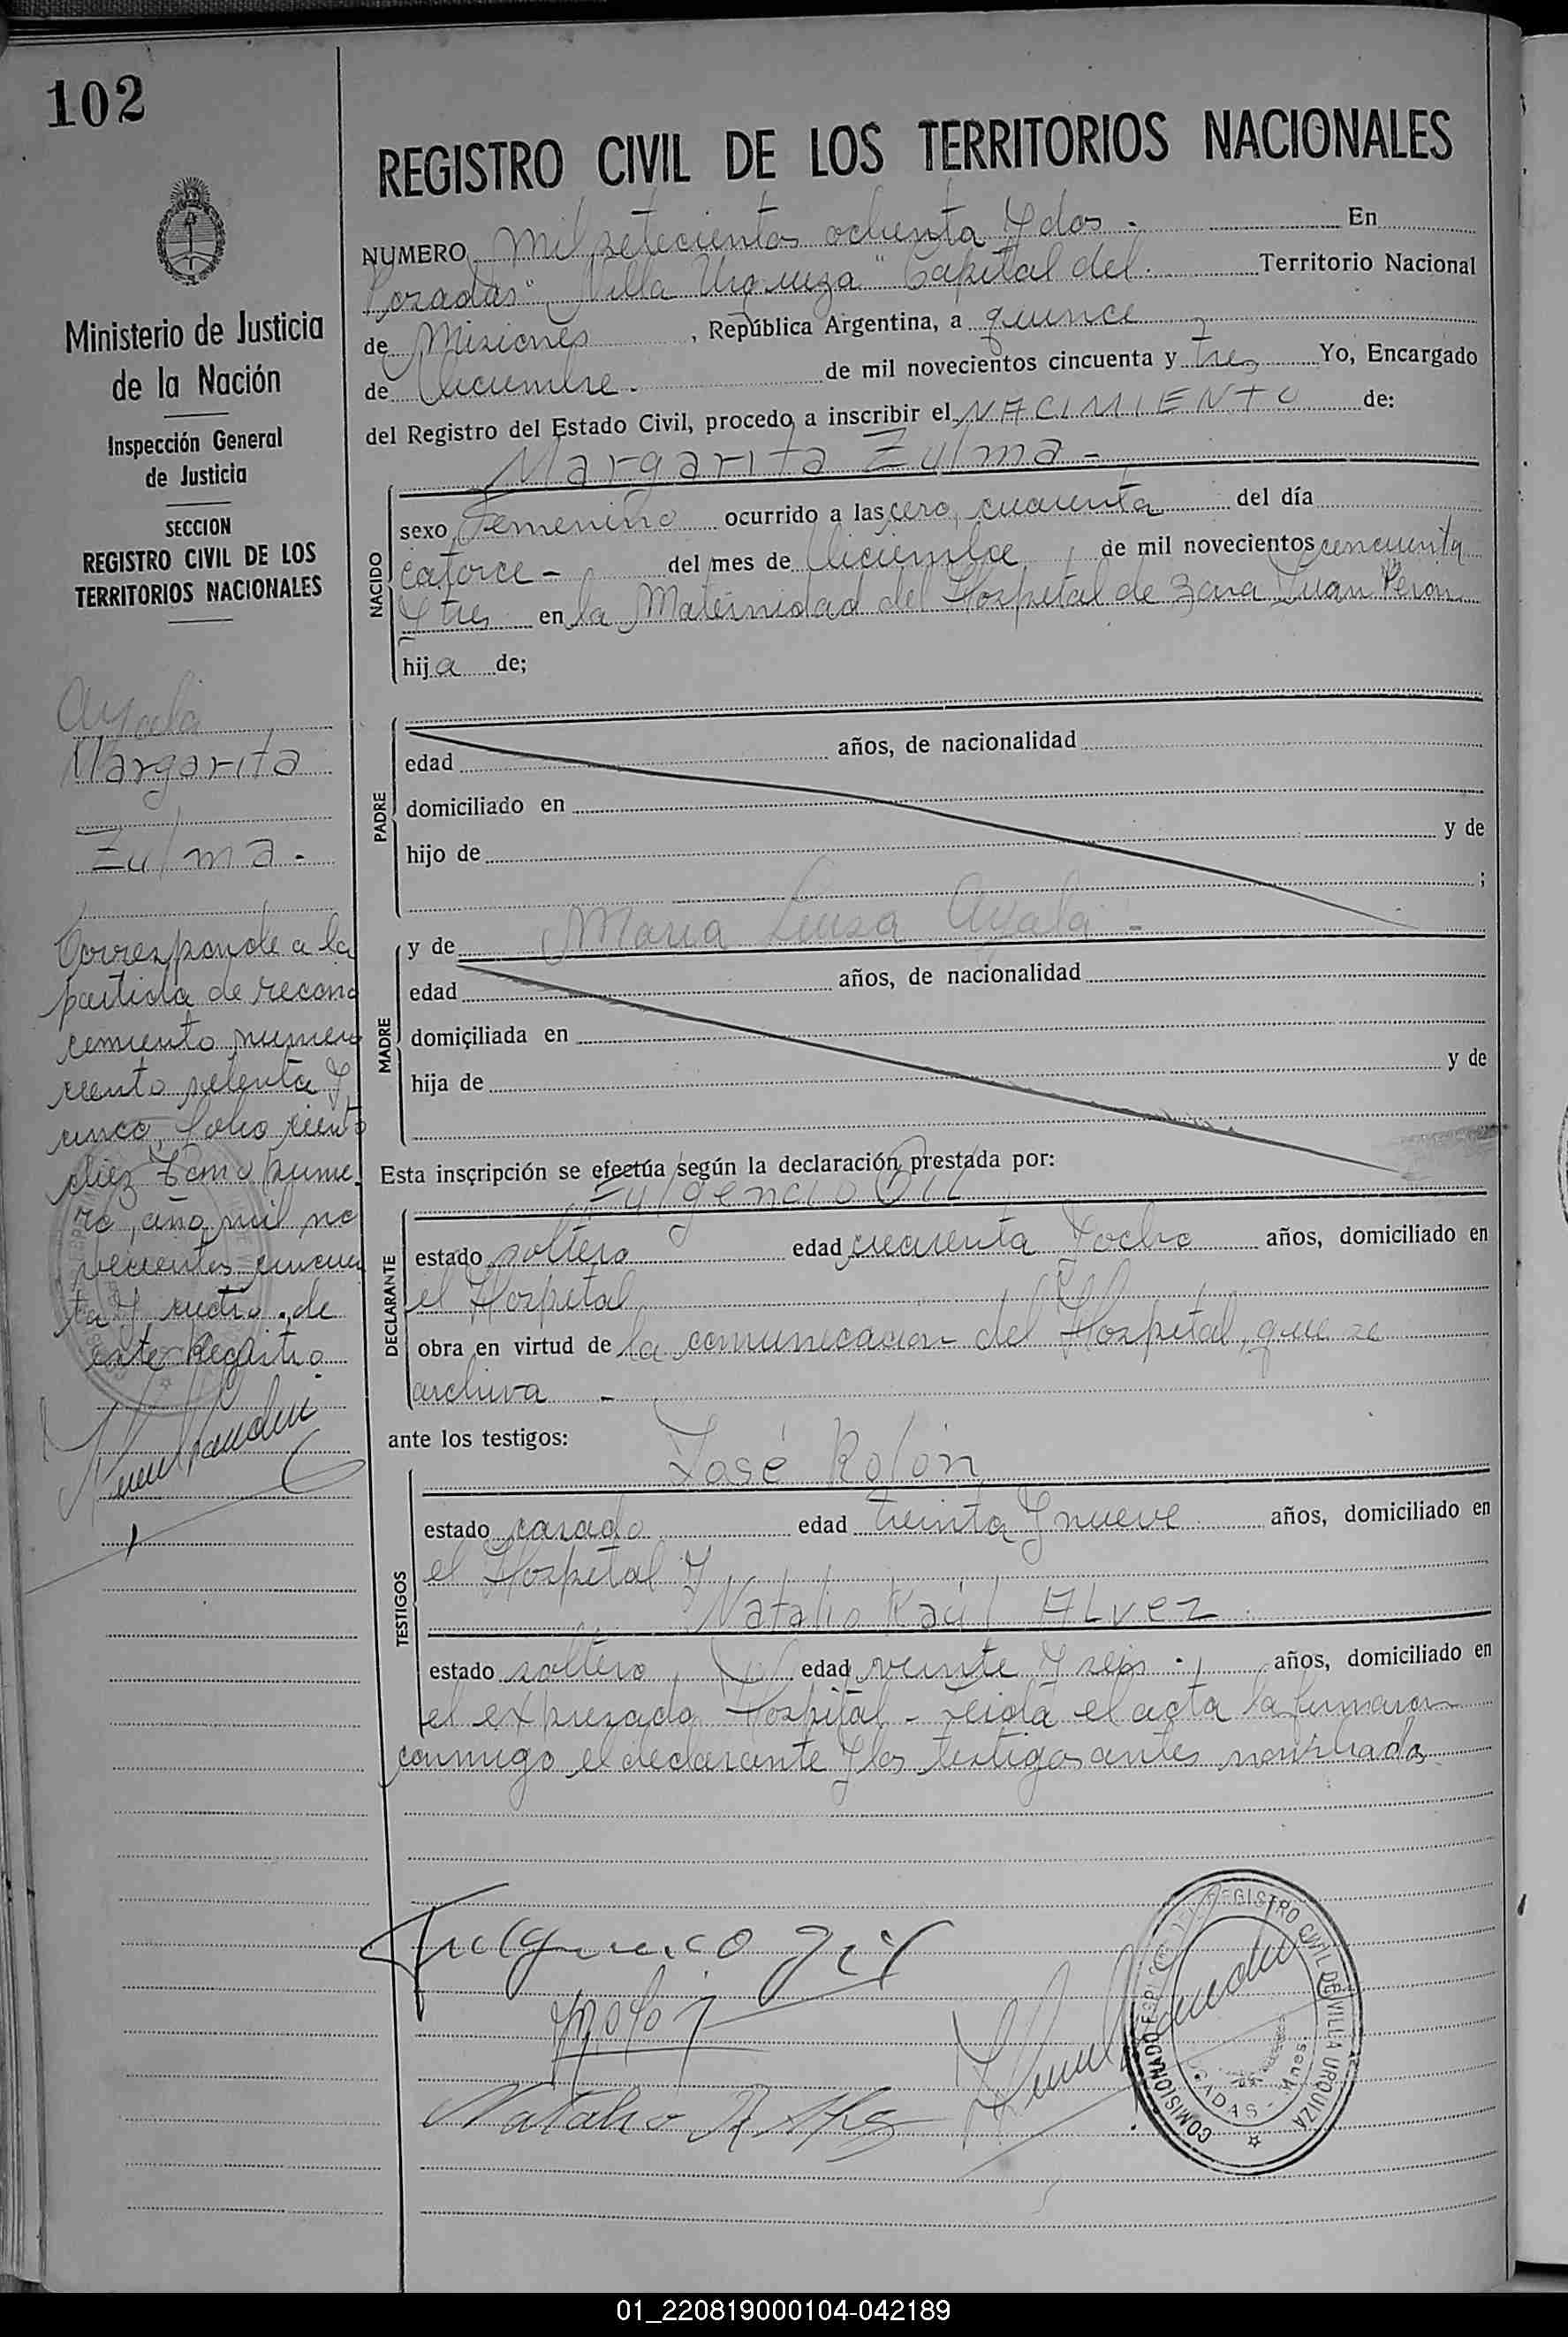 102
REGISTRO CIVIL DE LOS TERRITORIOS NACIONALES
Ministerio de Justicia
de la Nación
Inspección General
de Justicia
SECCION
REGISTRO CIVIL DE LOS
TERRITORIOS NACIONALES
Ayala
Margarita
Zulma.
Corresponde a la
partida de recono
cimiento numero
ciento setenta y
cinco, folio ciento
diez tomo prime.
ro, año mil no
vecientos cincuen
ta y cuatro, de
este Registro.
NUMERO mil setecientos ochenta y dos - En
Posadas "Villa Urquiza" Capital del Territorio Nacional
de Misiones, República Argentina, a quince
de Diciembre. de mil novecientos cincuenta y tres Yo, Encargado
del Registro del Estado Civil, procedo a inscribir el NACIMIENTO de:
Margarita Zulma -
NACIDO
sexo Femenino ocurrido a las cero, cuarenta del día
catorce - del mes de Diciembre, de mil novecientos cincuenta
y tres en la Maternidad del Hospital de Zona Juan Perón
hija de;
PADRE
edad años, de nacionalidad
domiciliado en
hijo de y de
;
MADRE
y de Maria Luisa Ayala -
edad años, de nacionalidad
domiciliada en
hija de y de
Esta inscripción se efectúa según la declaración prestada por:
Fulgencio Gil
DECLARANTE
estado soltero edad cuarenta y ocho años, domiciliado en
el Hospital
obra en virtud de la comunicacion del Hospital, que se
archiva -
ante los testigos:
José Rolón
TESTIGOS
estado casado edad treinta y nueve años, domiciliado en
el Hospital y
Natalio Raúl ALvez
estado soltero, edad veinte y seis. años, domiciliado en
el expresado Hospital - Leida el acta la firmaron
conmigo el declarante y los testigos antes nombrados
Fulgencio Gil
Natalio R Alvez
COMISIONADO REGISTRO CIVIL DE VILLA URQUIZA
POSADAS - Mnes
01_220819000104-042189